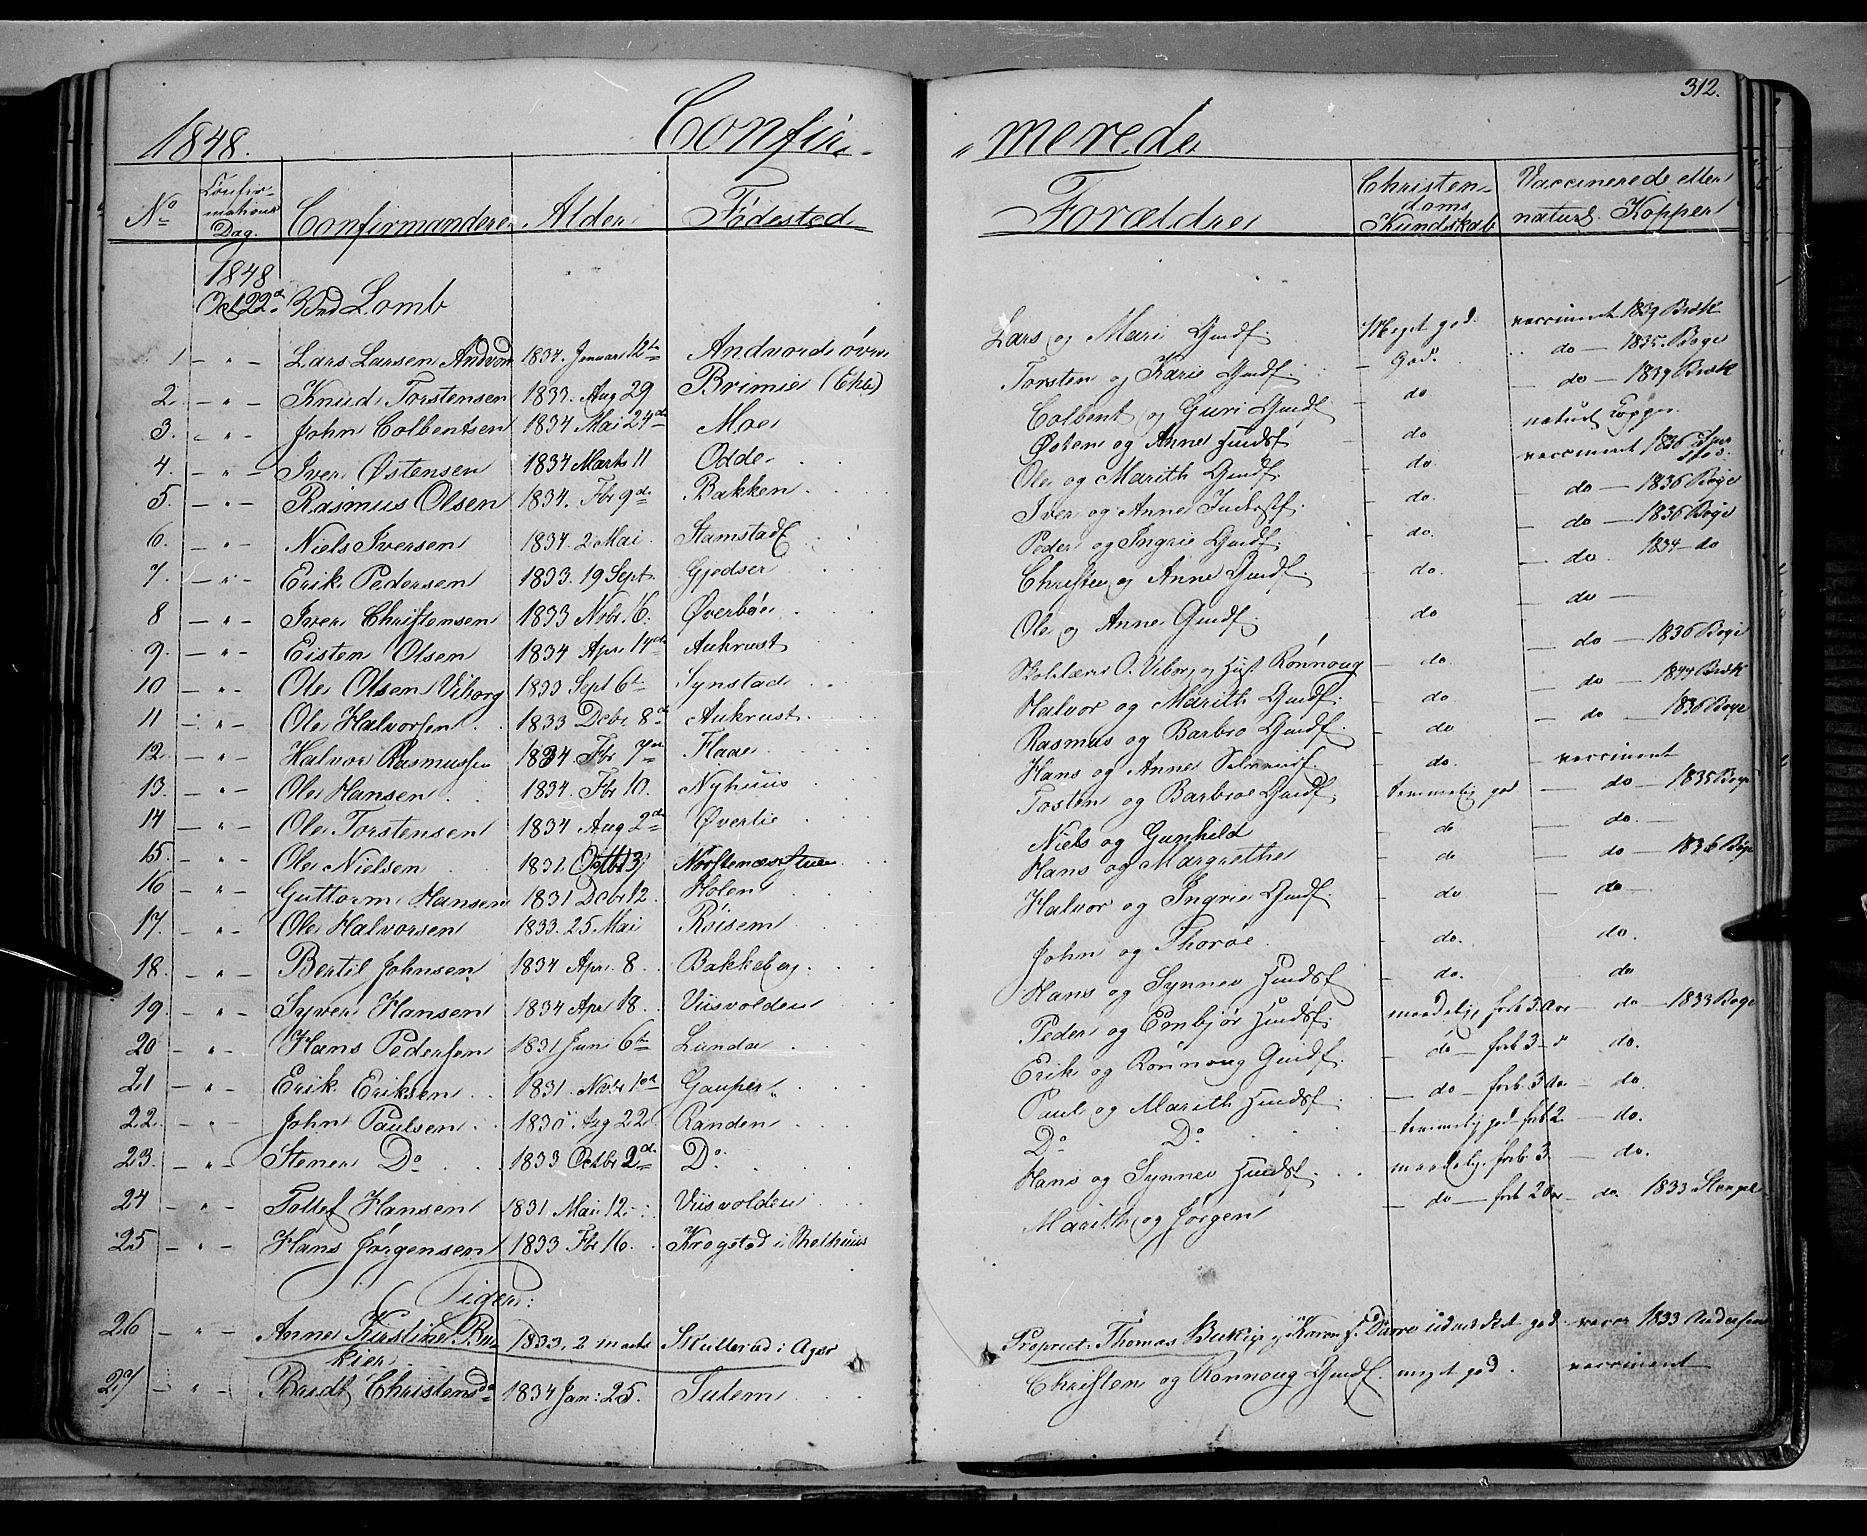 312.
1848. Confir- -merede
No Confirmations Dag. Confirmandere Alder Fødested Forældre Christendoms Kundskab Vaccinerede eller naturl. Kopper
1848
Oct 22d Ved Lomb
1 - " - Lars Larsen Andvord 1834. Januar 12te Andvord øvre Lars og Mari Gmdf. Meget god. vaccineret 1839 Bræk
2. - " - Knud Torstensen 1833. Aug 29 Brimie Torsten og Karie Gmdf. - God. " do - 1835. Boye
3. - " - John Colbentsen 1834 Mai 24de Moe Colbent og Guri Gmdf - do - do - 1839 Bræk
4. - " - Iver Østensen 1834 Marts 11 Odde Østen og Anne Huusf - do naturl Kopper
5. - " - Rasmus Olsen 1834. Fbr 9de Bakken Ole og Marith Gmdf. - do vaccineret 1836
6. - " - Niels Iversen 1834. 2 Mai Stamstad Iver og Anne - do. - do - 1836 Boye
7. - " - Erik Pedersen 1833. 19 Sept. Gjedser Peder og Ingrie Gmdf. - do. - do - 1836 Boye
8 - " - Iver Christensen 1833 Nvbr. 16. Øverbøe Christen og Anne Gmdf. - do. - do. 1834 - do
9. - " - Eisten Olsen 1834 Apr. 14de Aukrust Ole og Anne Gmdf. - do - do -
10 - " - Ole Olsen Viborg 1833 Sept 6te Synstad Skolelærer O. Viborg og Hust Rønnoug - do. - do - 1836 Boye
11 - " - Ole Halvorsen 1833 Debr 8de Aukrust Halvor og Marith Gmdf. - do - do - 1844 Bræk
12. - " - Halvor Rasmussen 1834 Fbr 7de Flaae Rasmus og Barbro Gmdf. - do - do - 1836 Boye
13. - " - Ole Hansen 1834. Fbr 10. Nyhuus Hans og Anne - do. vaccineret
14 - " - Ole Torstensen 1834 Aug 2de Øverlie Tosten og Barbroe Gmdf. - temmelig god - do - 1835 Boye
15. - " - Ole Nielsen 1831. Octbr 3 Niels og Gunhild - do - do. -
16 - " - Guttorm Hansen 1831 Debr 12 Holen Hans og Margrethe - do - do - 1836 Boye
17. - " - Ole Halvorsen 1833. 25 Mai Røisem Halvor og Ingrie Gmdf. - do - do -
18. - " - Bertil Johnsen 1834 Apr. 8 Bakkeberg John og Thorøe. - do. do.
19. - " - Syver Hansen 1834 Apr 18. Viisvolden Hans og Synnev Huusf - do. - do
20 - " - Hans Pedersen 1831 Juni 6te Lunda Peder og Embjør Huusf. maadelig forb. 3 Aar - do - 1833 Boye
21 - " - Erik Eriksen 1831. Nvbr 1ste Gauper Erik og Rønnoug Gmdf. - do - forb 3 - do.
22. - " - John Paulsen 1830 Aug 22 Randen Paul og Marith Huusf. - do - forb. 3 Aar - do.
23. - " - Stener Do 1833 Octbr 2de Do Do Do - temmelig god forb 2 - do.
24 - " - Tollef Hansen 1831 Mai 12 Viisvolden Hans og Synnev Huusf. maadelig. forb. 3 - do.
25 - " - Hans Jørgensen 1833 Fbr 16. Krogstad i Marith og Jørgen - do - forb 2 Aar - do. 1833
Piger:
26 - " - Anne Kirstine Bu- 1833, 2 marts i Ager Propriet. Thomas og Karen f. Darre udmærket god. vacc 1833 Andersen
kier
27 - " - Christensda 1834 Jan: 25. Sulem Christen og Rønnoug Gmdf. meget god. vaccineret